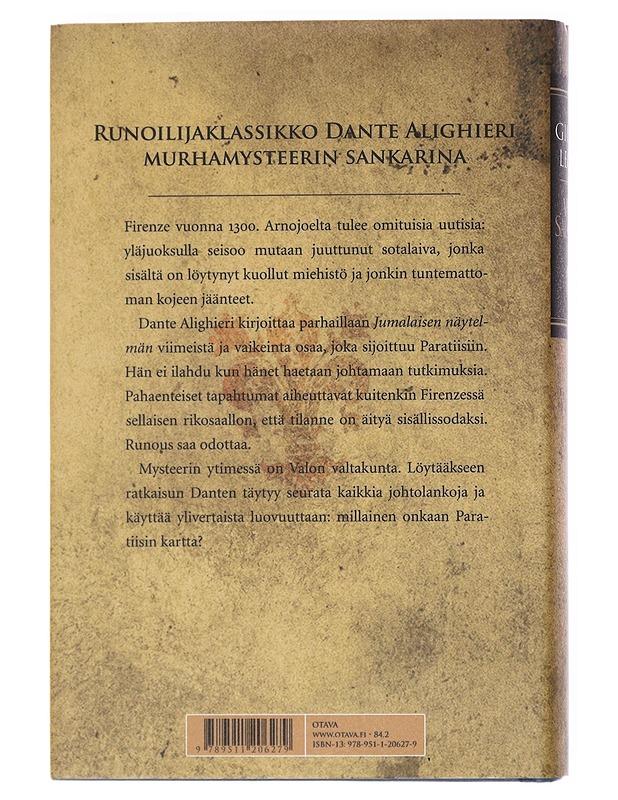 RUNOILIJAKLASSIKKO DANTE ALIGHIERI
MURHAMYSTEERIN SANKARINA
Firenze vuonna 1300. Arnojoelta tulee omituisia uutisia:
yläjuoksulla seisoo mutaan juuttunut sotalaiva, jonka
sisältä on löytynyt kuollut miehistö ja jonkin tuntematto-
man kojeen jäänteet.
Dante Alighieri kirjoittaa parhaillaan Jumalaisen näytel-
män viimeistä ja vaikeinta osaa, joka sijoittuu Paratiisiin.
Hän ei ilahdu kun hänet haetaan johtamaan tutkimuksia.
Pahaenteiset tapahtumat aiheuttavat kuitenkin Firenzessä
sellaisen rikosaallon, että tilanne on äityä sisällissodaksi.
Runous saa odottaa.
Mysteerin ytimessä on Valon valtakunta. Löytääkseen
ratkaisun Danten täytyy seurata kaikkia johtolankoja ja
käyttää ylivertaista luovuuttaan: millainen onkaan Para-
tiisin kartta?
9 789511 206279
OTAVA
WWW.OTAVA.FI · 84.2
ISBN-13: 978-951-1-20627-9